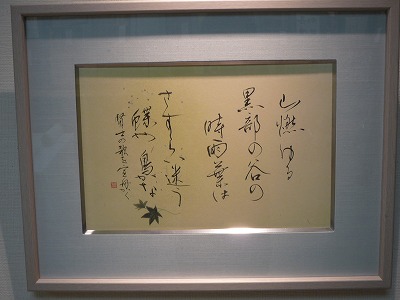 山燃ゆる
黒部の谷の
時雨葉は
さすらい迷う
蝶か鳥かな